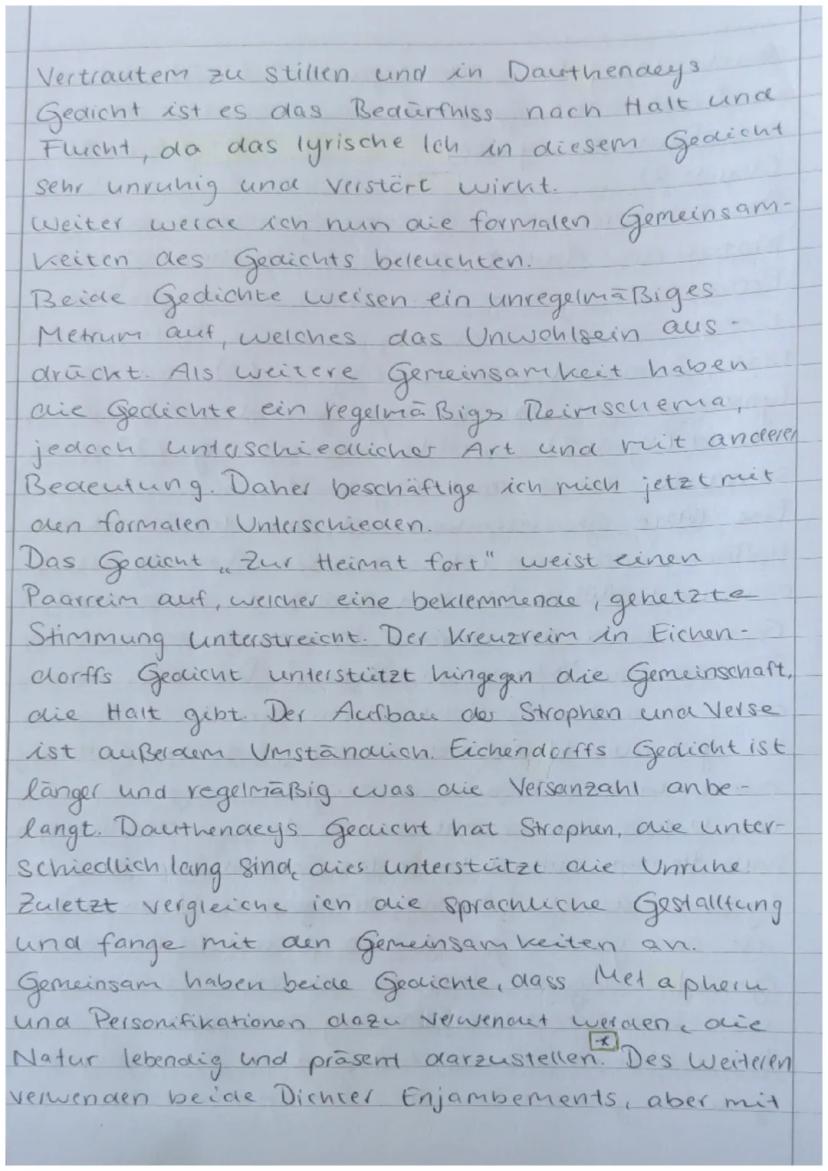 Vertrautem zu stillen und in Dauthendeys
Gedicht ist es das Bedürfniss nach Halt und
Flucht, da das lyrische Ich in diesem Gedicht
sehr unruhig und verstört wirkt.
Weiter werde ich nun die formalen Gemeinsam-
keiten des Gedichts beleuchten.
Beide Gedichte weisen ein unregelmäßiges
Metrum auf, welches das Unwohlsein aus-
drückt. Als weitere Gemeinsamkeit haben
die Gedichte ein regelmäßigs Reimschema,
jedoch unterschiedlicher Art und mit anderer
Bedeutung. Daher beschäftige ich mich jetzt mit
den formalen Unterschieden.
Das Gedicht „Zur Heimat fort" weist einen
Paarreim auf, welcher eine beklemmende, gehetzte
Stimmung unterstreicht. Der Kreuzreim in Eichen-
dorffs Gedicht unterstützt hingegen die Gemeinschaft,
die Halt gibt. Der Aufbau der Strophen und Verse
ist außerdem Umständlich. Eichendorffs Gedicht ist
länger und regelmäßig was die Versanzahl anbe-
langt. Dauthendeys Gedicht hat Strophen, die unter-
schiedlich lang sind, dies unterstützt die Unruhe.
Zuletzt vergleiche ich die sprachliche Gestalltung
und fange mit den Gemeinsamkeiten an.
Gemeinsam haben beide Gedichte, dass Metaphern
und Personifikationen dazu verwendet werden, die
Natur lebendig und präsent darzustellen. * Des Weiteren
verwenden beide Dichter Enjambements, aber mit